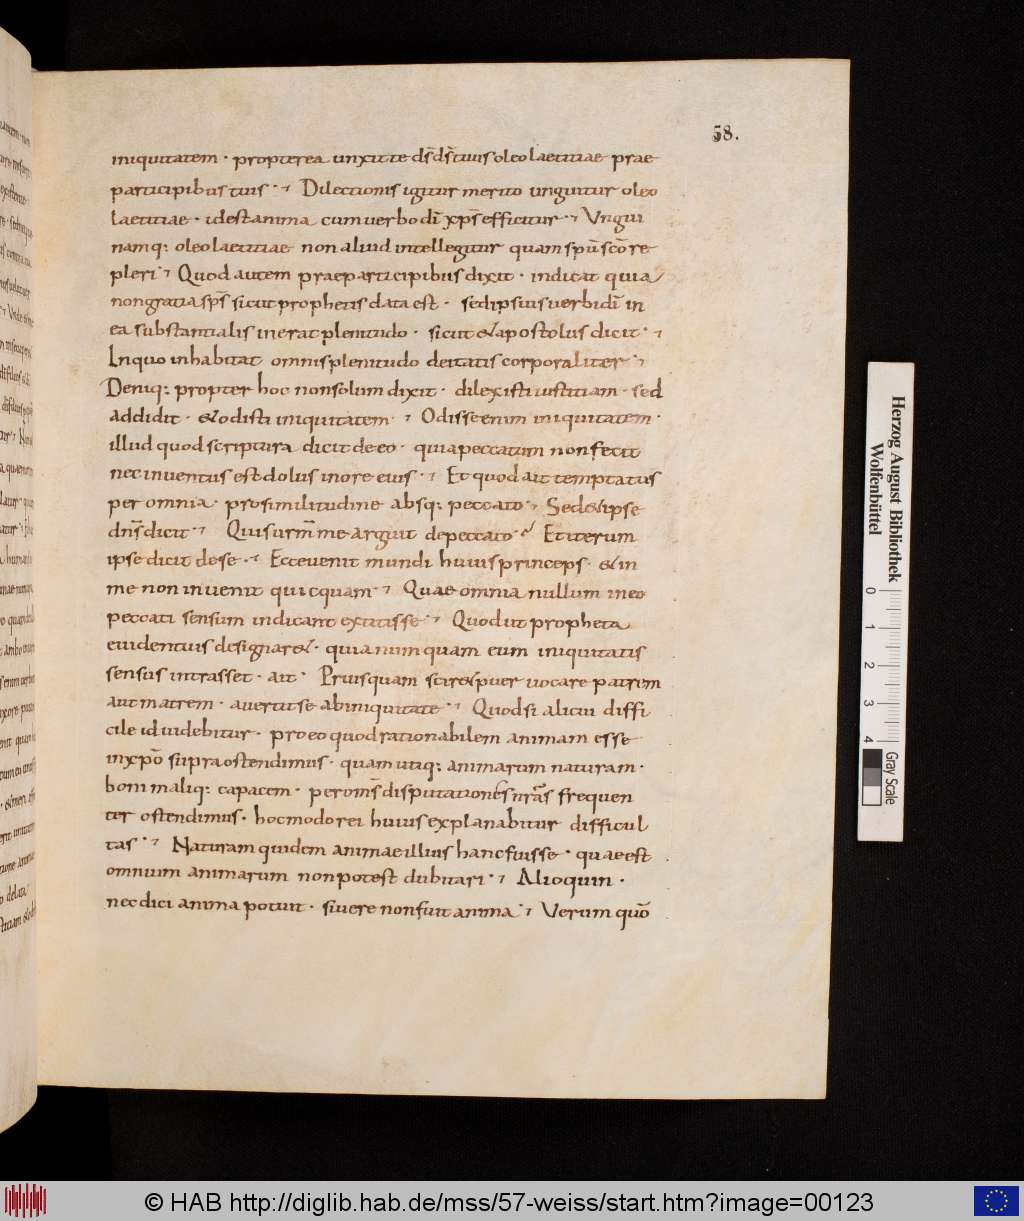 58.
iniquitatem · propterea unxit te ds̄ ds̄ tuus oleo laetitiae prae
participibus tuis · Dilectionis igitur merito unguitur oleo
laetitiae · idest anima cum uerbo dī xp̄s efficitur · Ungui
namq: oleo laetitiae non aliud intellegitur quam spū scō re
pleri · Quod autem prae participibus dixit · indicat quia
non gratia sp̄s sicut prophetis data est · sed ipsius uerbi dī in
ea substantialis inerat plenitudo · sicut & apostolus dicit ·
In quo inhabitat omnis plenitudo deitatis corporaliter ·
Deniq: propter hoc non solum dixit · dilexisti iustitiam · sed
addidit · & odisti iniquitatem · Odisse enim iniquitatem ·
illud quod scriptura dicit de eo · quia peccatum non fecit
nec inuentus est dolus in ore eius · Et quod ait temptatus
per omnia · pro similitudine absq: peccato · Sed & ipse
dn̄s dicit · Quis urm̄ me arguit de peccato · Et iterum
ipse dicit de se · Ecce uenit mundi huius princeps · & in
me non inuenit quicquam · Quae omnia nullum in eo
peccati sensum indicant extitisse · Quod ut propheta
euidentius designar& · quia numquam eum iniquitatis
sensus intrasset · ait · Priusquam scir& puer uocare patrem
aut matrem · auertit se ab iniquitate · Quod si alicui diffi
cile id uidebitur · pro eo quod rationabilem animam esse
in xpō supra ostendimus · quam utiq: animarum naturam ·
boni maliq: capacem · per omīs disputationes nrās frequen
ter ostendimus · hoc modo rei huius explanabitur difficul
tas · Naturam quidem animae illius hanc fuisse · quae est
omnium animarum non potest dubitari · Alioquin ·
nec dici anima potuit · si uere non fuit anima · Verum quō
Herzog August Bibliothek
Wolfenbüttel
0 1 2 3 4
Gray Scale
© HAB http://diglib.hab.de/mss/57-weiss/start.htm?image=00123